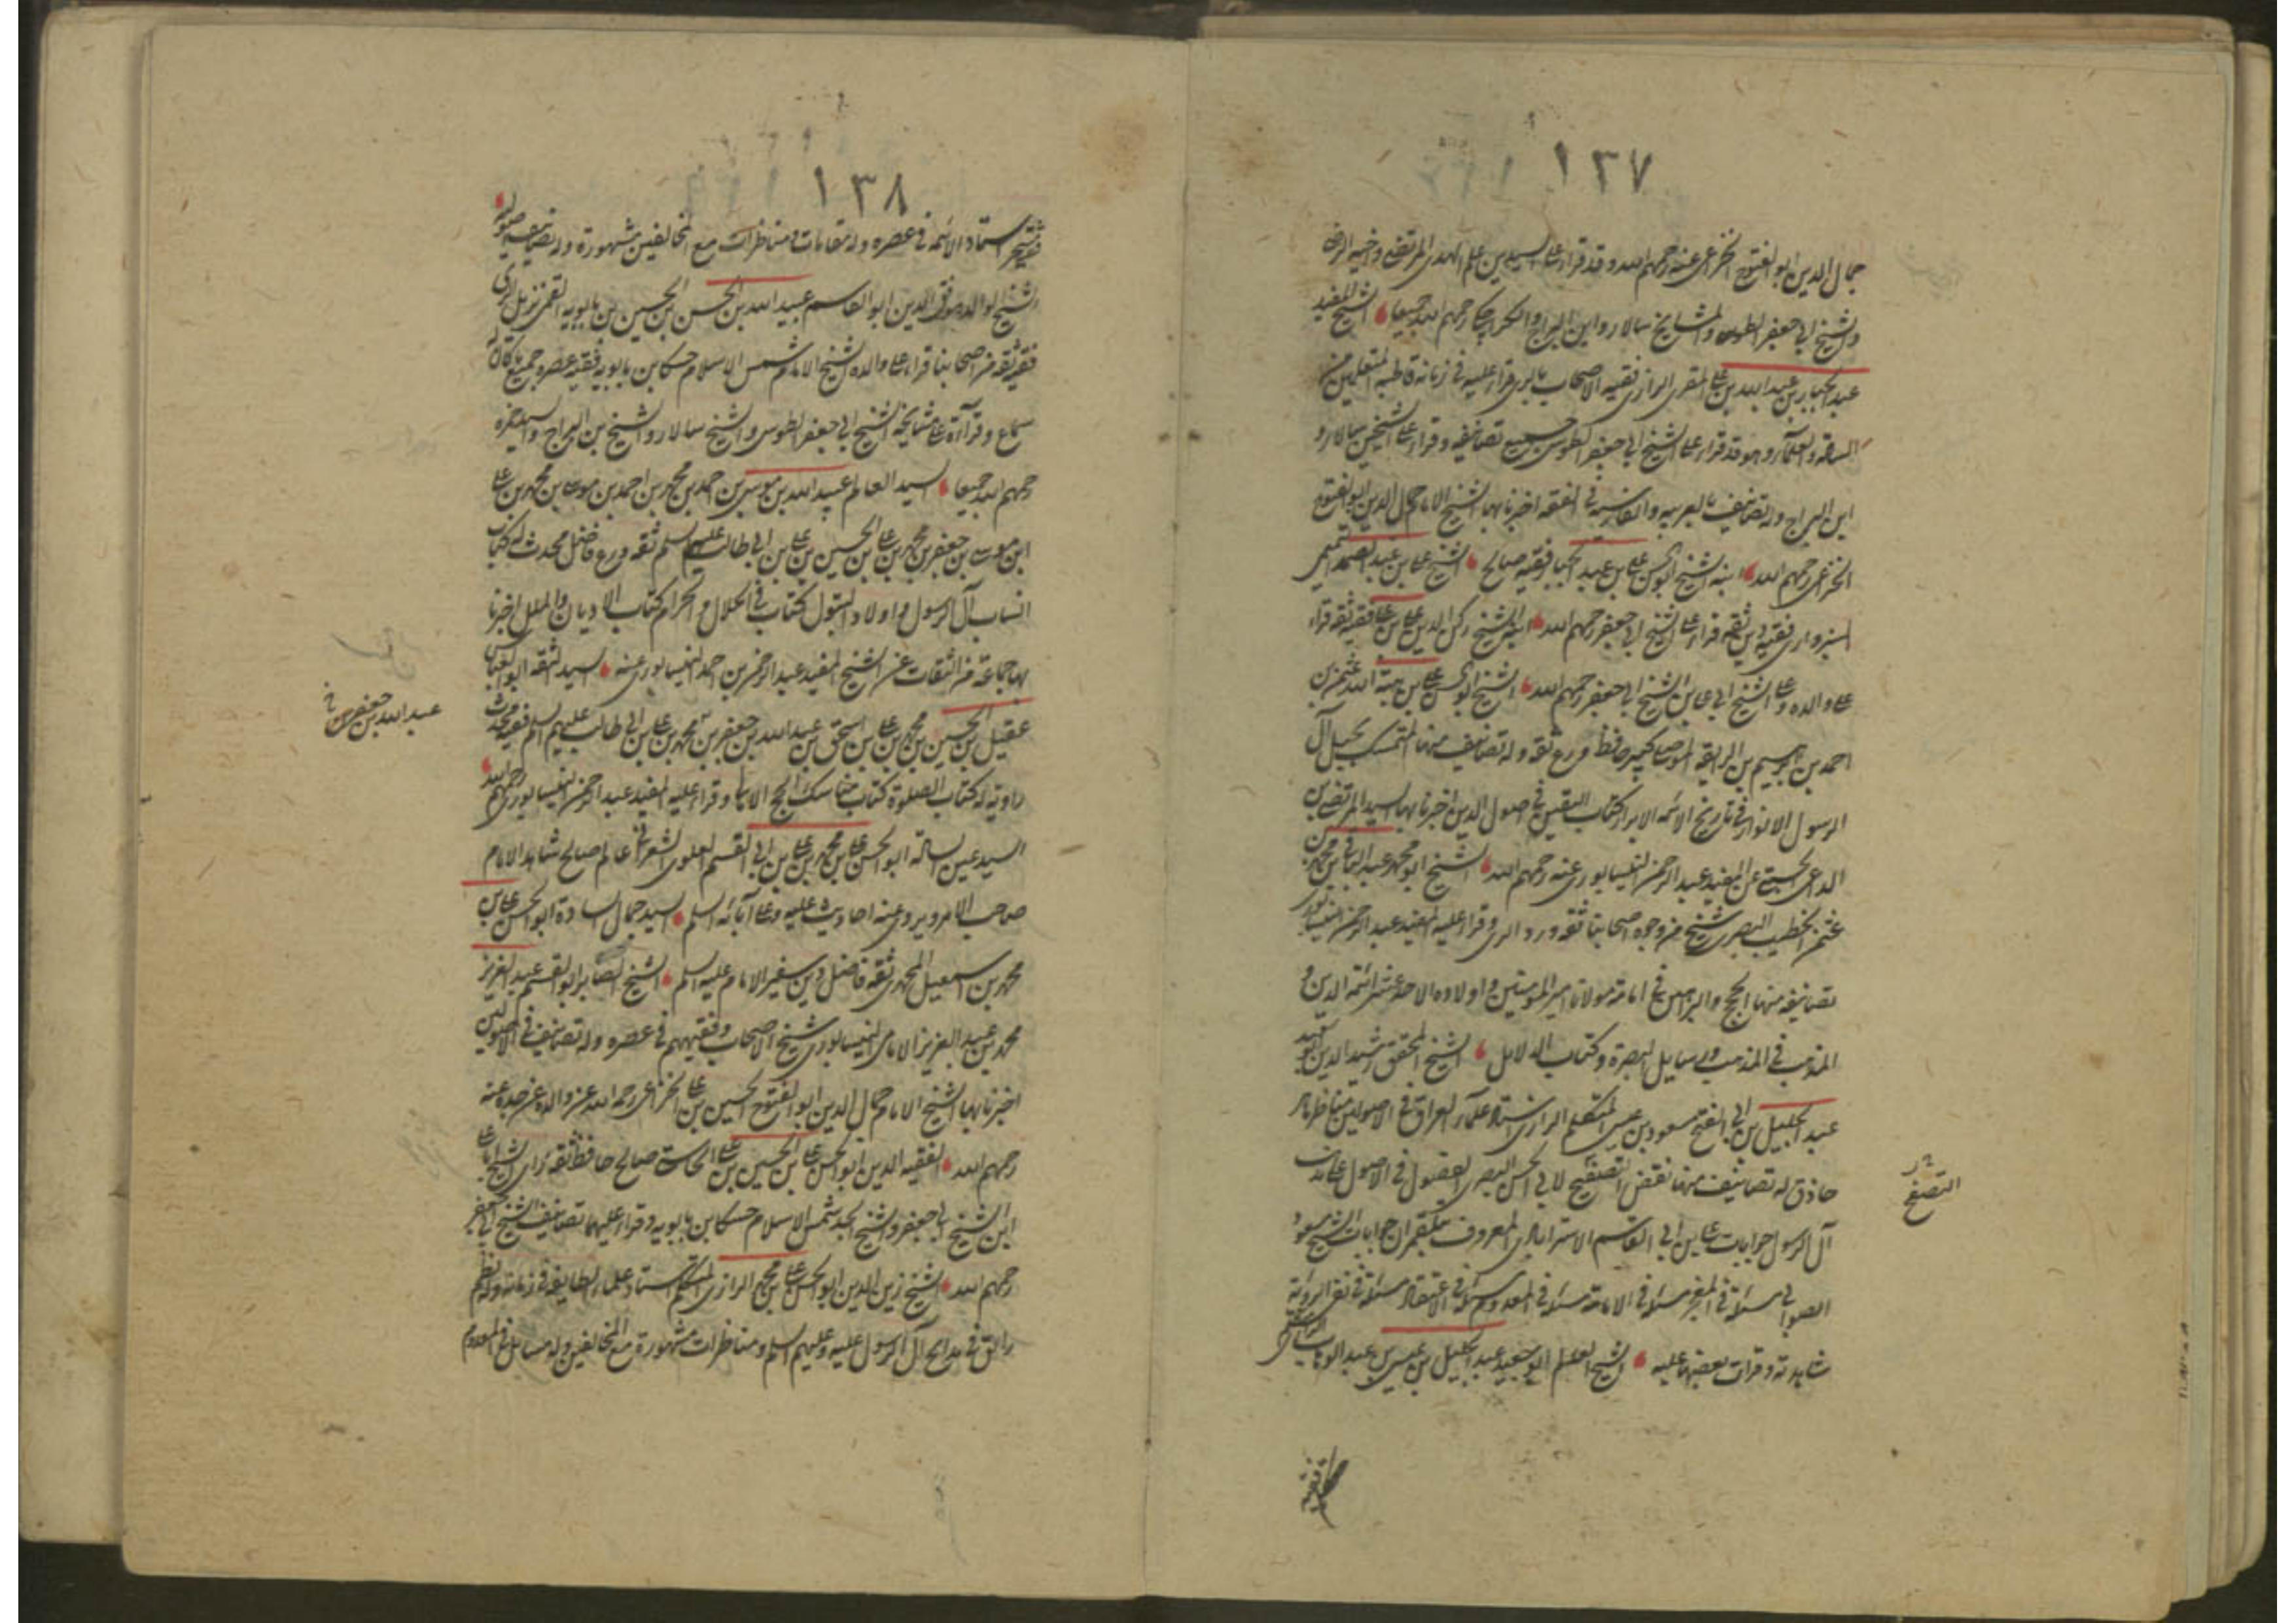 ١٣٧
جمال الدين ابو الفتوح الخزاعى عنه رحمهم الله وقد قراء على السيدين علم الهدى المرتضى واخيه الرضى
والشيخ ابى جعفر الطوسى والمشايخ سالار وابن البراج والكراجكى رحمهم الله جميعا الشيخ المفيد
عبد الجبار بن عبد الله بن على المقرى الرازى فقيه الاصحاب بالرى قراء عليه فى زمانه قاطبة المتعلمين من
السادة والعلماء وهو قد قراء على الشيخ ابى جعفر الطوسى جميع تصانيفه وقراء على الشيخين سالار و
ابن البراج وله تصانيف بالعربية والفارسية فى الفقه اخبرنا بها الشيخ الامام جمال الدين ابو الفتوح
الخزاعى رحمهم الله ابنه الشيخ ابو الحسن على بن عبد الجبار فقيه صالح الشيخ على بن عبد الصمد التميمى
السبزوارى فقيه دين ثقه قراء على الشيخ ابى جعفر رحمهم الله ابنه الشيخ ركن الدين على بن على فقيه ثقه قراء
على والده وعلى الشيخ ابى على بن الشيخ ابى جعفر رحمهم الله الشيخ ابو الحسن على بن هبة الله عثمن بن
احمد بن ابرهيم بن الرايقه الموصلى كبير حافظ ورع ثقه وله تصانيف منها المتمسك بحبل آل
الرسول الانوار فى تاريخ الائمه الابرار كتاب اليقين فى اصول الدين اخبرنا بها السيد المرتضى بن
الداعى الحسنى عن المفيد عبد الرحمن النيسابورى عنه رحمهم الله الشيخ ابو محمد عبد الباقى بن محمد بن
عثمن الخطيب البصرى شيخ من وجوه اصحابنا ثقه ورد الرى وقراء عليه المفيد عبد الرحمن النيسابورى
تصانيفه منها الحجج والبراهين فى امامة مولانا امير المؤمنين واولاده الاحد عشر ائمة الدين و
المذهب فى المذهب ورسايل البصرة وكتاب الدلايل الشيخ المحقق رشيد الدين ابو سعيد
عبد الجليل بن ابى الفتح مسعود بن عيسى المتكلم الرازى استاد علماء العراق فى الاصولين مناظر ماهر
حاذق له تصانيف منها نقض التصفح لابى الحسن البصرى الفصول فى الاصول على مذهب
آل الرسول جوابات على بن ابى القاسم الاسترابادى المعروف ببلقمران جوابات الشيخ مسعود
الصوابى مسئلة فى المعجز مسئلة فى الامامة مسئلة فى المعدوم مسئلة فى الاعتقاد مسئلة فى نفى الروية
شاهدته وقرات بعضها عليه الشيخ العالم ابو سعيد عبد الجليل بن عيسى بن عبد الوهاب الرازى متكلم
التصفح
فقيه
١٣٨
فقيه متبحر استاد الائمه فى عصره وله مقامات ومناظرات مع المخالفين مشهورة وله تصانيف اصولية
الشيخ الوالد موفق الدين ابو القاسم عبيد الله بن الحسن بن الحسين بن بابويه القمى نزيل الرى
فقيه ثقه من اصحابنا قراء على والده الشيخ الامام شمس الاسلام حسكا بن بابويه فقيه عصره جميع ما كان له
سماع وقراءة على مشايخه الشيخ ابى جعفر الطوسى والشيخ سالار والشيخ بن البراج والسيد حمزه
رحمهم الله جميعا السيد العالم عبيد الله بن موسى بن احمد بن محمد بن احمد بن موسى بن محمد بن على
ابن موسى بن جعفر بن محمد بن على بن الحسين بن على بن ابى طالب عليهم السلم ثقه ورع فاضل محدث له كتاب
انساب آل الرسول واولاد البتول كتاب فى الحلال والحرام كتاب الاديان والملل اخبرنا
بها جماعة من الثقات عن الشيخ المفيد عبد الرحمن بن احمد النيسابورى عنه السيد الثقه ابو العباس
عقيل بن الحسين بن محمد بن على بن اسحق بن عبد الله بن جعفر بن محمد بن على بن ابى طالب عليهم السلم فقيه محدث
راويه له كتاب الصلوة كتاب مناسك الحج الامالى وقراء عليه المفيد عبد الرحمن النيسابورى رحمهم الله
السيد عين السادة ابو الحسن على بن محمد بن على بن ابى القسم العلوى الشعرانى عالم صالح شاهد الامام
صاحب الامر ويروى عنه احاديث عليه وعلى آبائه السلم السيد جمال السادة ابو الحسن على بن
محمد بن اسمعيل المحمدى ثقة فاضل دين سفير الامام عليه السلم الشيخ الصابر ابو القسم عبد العزيز
محمد بن عبد العزيز الامامى النيسابورى شيخ الاصحاب وفقيههم فى عصره وله تصانيف فى الاصولين
اخبرنا بها الشيخ الامام جمال الدين ابو الفتوح الحسين بن على الخزاعى رحمه الله عن والده عن جده عنه
رحمهم الله الفقيه الدين ابو الحسن على بن الحسين بن على الحاستى صالح حافظ ثقه راى الشيخ ابا على
ابن الشيخ ابى جعفر والشيخ الجد شمس الاسلام حسكا بن بابويه وقراء عليهما تصانيف الشيخ ابى جعفر
رحمهم الله الشيخ زين الدين ابو الحسن على بن محمد الرازى المتكلم استاد علماء الطايفه فى زمانه وله نظم
رايق فى مدايح آل الرسول عليه وعليهم السلم ومناظرات مشهورة مع المخالفين وله مسايل فى المعدوم
عبد الله بن جعفر بن